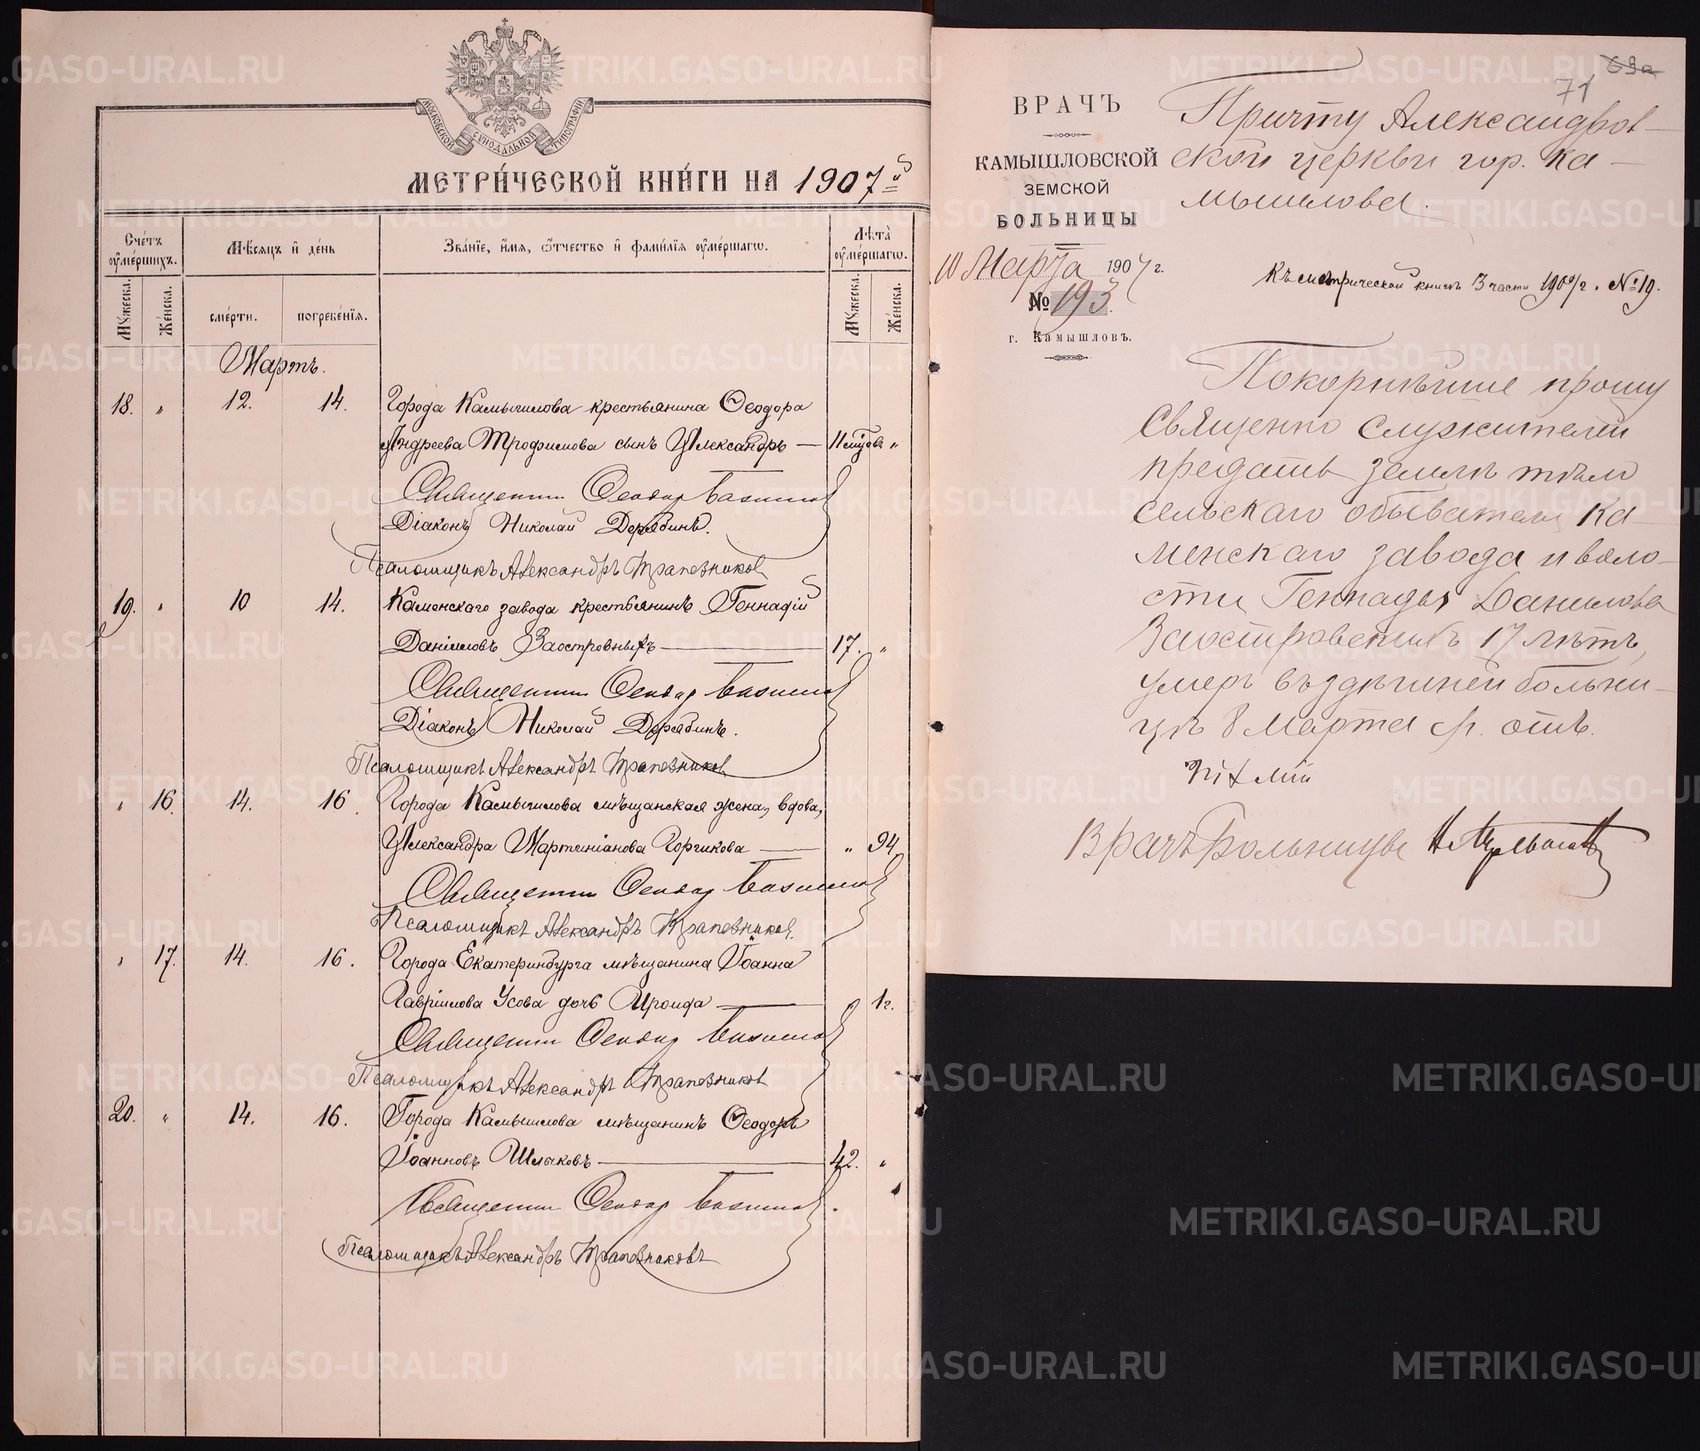 МОСКОВСКОЙ СѴНОДАЛЬНОЙ ТИПОГРАФІИ
МЕТРИ́ЧЕСКОЙ КНИ́ГИ НА 1907й
Сче́тъ оу҆ме́ршихъ.
Мѣ́сяцъ и҆ де́нь
Зва́нїе, и҆́мя, ѻ҆́тчество и҆ фами́лїя оу҆ме́ршагѡ.
Лѣ́та оу҆ме́ршагѡ.
Му́жеска.
Же́нска.
сме́рти.
погребе́нїя.
Му́жеска.
Же́нска.
Мартъ.
18. „ 12. 14. Города Камышлова крестьянина Ѳеодора
Андреева Трофимова сынъ Александръ — 11 мцвъ „
Священник Ѳеодор
Діаконъ Николай Дерябинъ.
Псаломщикъ Александръ Трапезников
19. „ 10 14. Каменскаго завода крестьянинъ Геннадій
Даніиловъ Заостровныхъ — 17. „
Священник Ѳеодор
Діаконъ Николай Дерябинъ.
Псаломщикъ Александръ Трапезников
„ 16. 14. 16. Города Камышлова мѣщанская жена, вдова,
Александра Мартиніанова Горчикова — „ 94
Священник Ѳеодор
Псаломщикъ Александръ Трапезников.
„ 17. 14. 16. Города Екатеринбурга мѣщанина Іоанна
Гавріилова Усова дочь Ираида — 1 г.
Священник Ѳеодор
Псаломщикъ Александръ Трапезников
20. „ 14. 16. Города Камышлова мѣщанинъ Ѳеодоръ
Іоанновъ Шлыковъ — 42. „
Священник Ѳеодор
Псаломщикъ Александръ Трапезниковъ
69а
71
ВРАЧЪ
КАМЫШЛОВСКОЙ
ЗЕМСКОЙ
БОЛЬНИЦЫ
10 Марта 1907 г.
№ 193.
г. Камышловъ.
Причту Александров-
ской церкви гор. Ка-
мышлова.
Къ метрической книгѣ 3 части 1907 г. № 19.
Покорнѣйше прошу
Священно служителей
предать землѣ тѣло
сельскаго обывателя Ка-
менскаго завода и воло-
сти Геннадія Данилова
Заостровныхъ 17 лѣтъ,
умеръ въ здѣшней больни-
цѣ 8 Марта с/г. отъ
Врачъ Больницы
METRIKI.GASO-URAL.RU